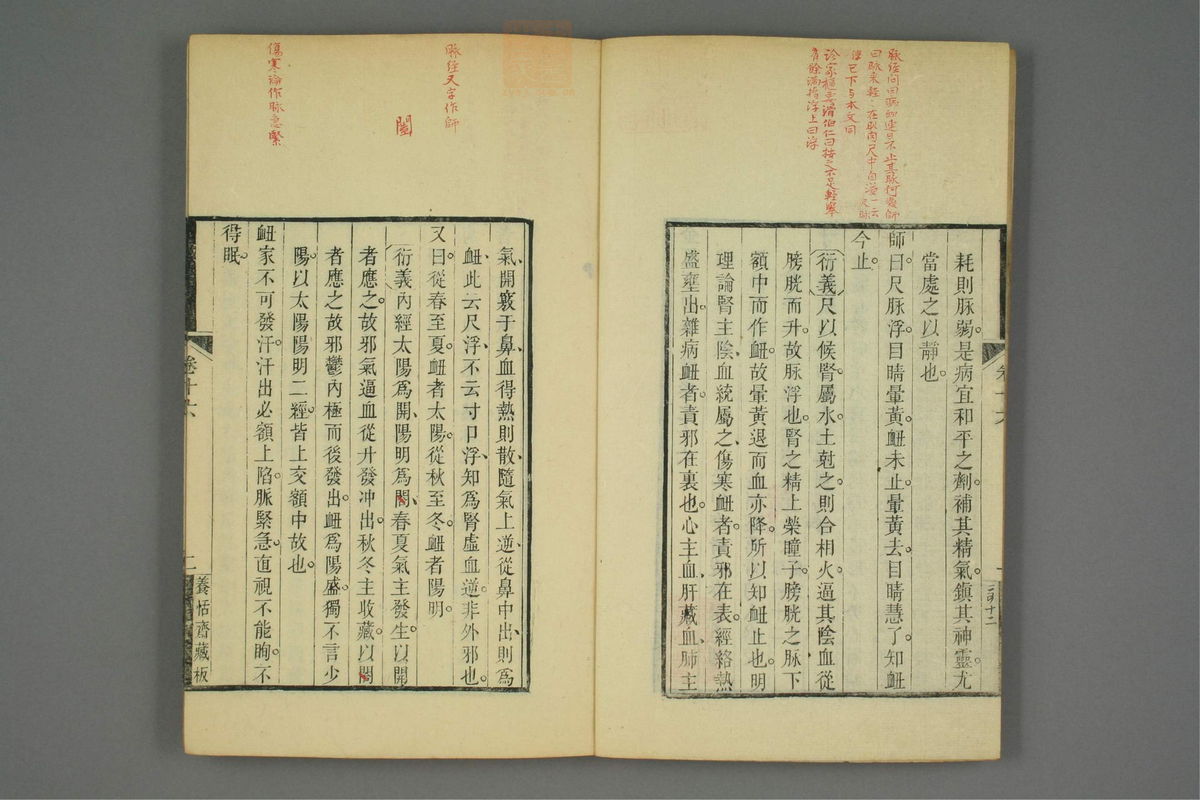 脉經問曰病衄連日不止其脉何類師
曰脉來輕輕在肌肉尺中自溢一云尺脉
浮已下与本文同
診家樞要滑伯仁曰按之不足輕舉
有餘滿指浮上曰浮
耗則脉弱是病宜和平之劑補其精氣鎮其神靈尤
當處之以靜也
師曰尺脉浮目睛暈黃衄未止暈黃去目睛慧了知衄
今止
衍義尺以候腎屬水土尅之則合相火逼其陰血從
膀胱而升故脉浮也腎之精上榮瞳子膀胱之脉下
額中而作衄故暈黃退而血亦降所以知衄止也明
理論腎主陰血統屬之傷寒衄者責邪在表經絡熱
盛壅出雜病衄者責邪在裏也心主血肝藏血肺主
卷十六
脉經又字作師
闔
傷寒論作脉急緊
氣開竅于鼻血得熱則散隨氣上逆從鼻中出則爲
衄此云尺浮不云寸口浮知爲腎虛血逆非外邪也
又曰從春至夏衄者太陽從秋至冬衄者陽明
衍義內經太陽爲開陽明爲閤春夏氣主發生以開
者應之故邪氣逼血從升發冲出秋冬主收藏以閤
者應之故邪鬱內極而後發出衄爲陽盛獨不言少
陽以太陽陽明二經皆上交額中故也
衄家不可發汗汗出必額上陷脈緊急直視不能眴不
得眠
卷十六
二
養恬齋藏板